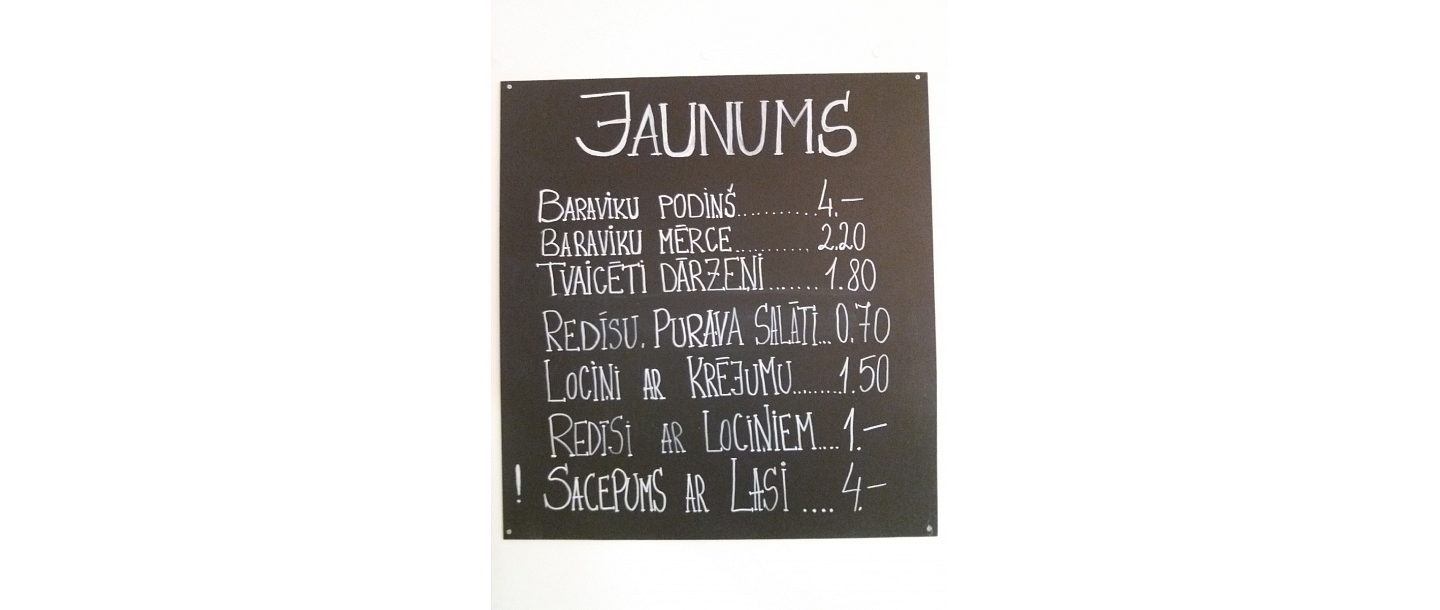 JAUNUMS
BARAVIKU PODIŅŠ..........4.—
BARAVIKU MĒRCE.......... 2.20
TVAICĒTI DĀRZEŅI....... 1.80
REDĪSU, PURAVA SALĀTI... 0.70
LOCIŅI AR KRĒJUMU.......1.50
REDĪSI AR LOCIŅIEM....1.—
! SACEPUMS AR LASI .... 4.—